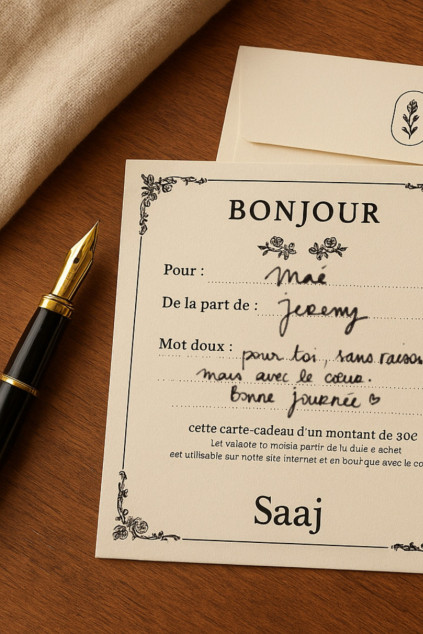 BONJOUR
Pour : Maé
De la part de : jeremy
Mot doux : pour toi, sans raison
mais avec le cœur.
Bonne journée ♡
cette carte-cadeau d'un montant de 30€
Let valaote to moisia partir de lu duie e achet
est utilisable sur notte site internet et en bouirque avec le co
Saaj